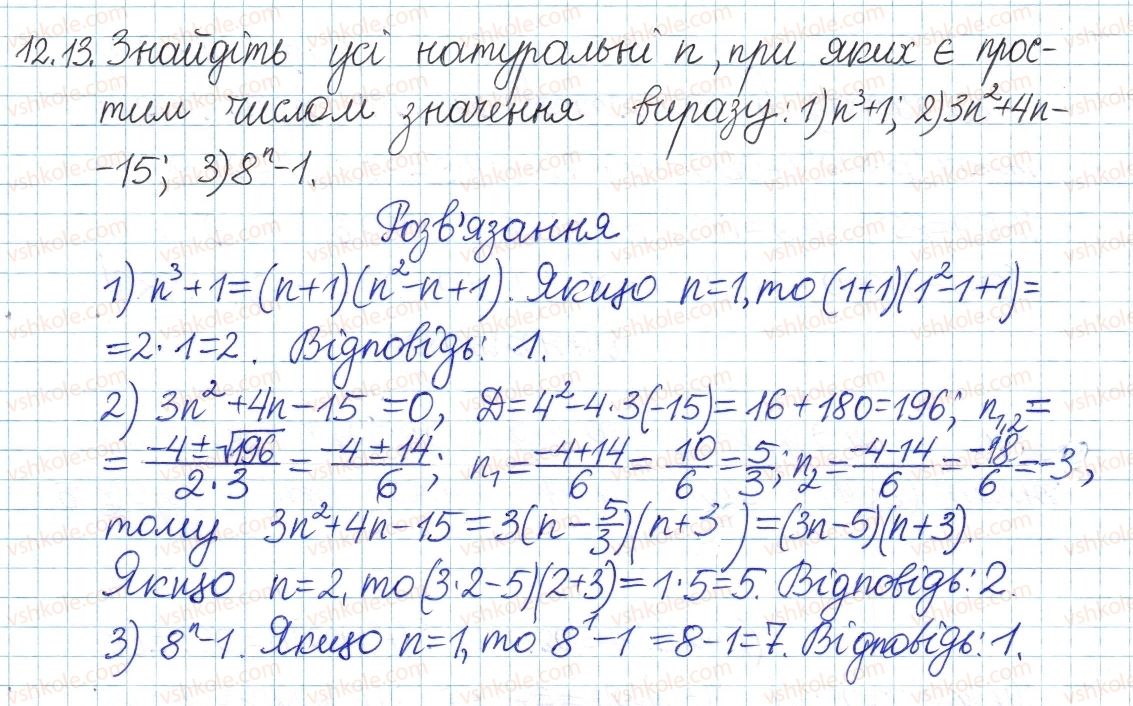 12.13. Знайдіть усі натуральні n, при яких є прос-
тим числом значення виразу: 1) n³+1; 2) 3n²+4n-
-15; 3) 8ⁿ-1.
Розв'язання
1) n³+1=(n+1)(n²-n+1). Якщо n=1, то (1+1)(1²-1+1)=
=2·1=2. Відповідь: 1.
2) 3n²+4n-15=0, D=4²-4·3(-15)=16+180=196; n₁,₂=
= (-4±√196)/(2·3) = (-4±14)/6; n₁= (-4+14)/6 = 10/6 = 5/3; n₂= (-4-14)/6 = -18/6 = -3;
тому 3n²+4n-15=3(n-5/3)(n+3)=(3n-5)(n+3).
Якщо n=2, то (3·2-5)(2+3)=1·5=5. Відповідь: 2.
3) 8ⁿ-1. Якщо n=1, то 8¹-1=8-1=7. Відповідь: 1.